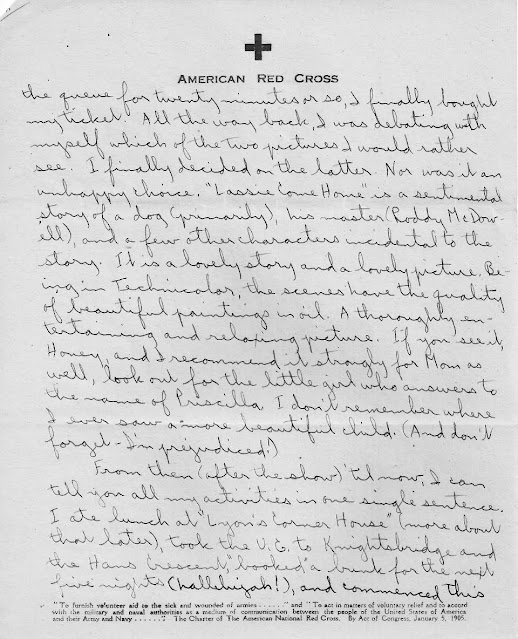 AMERICAN RED CROSS
the queue for twenty minutes or so, I finally bought
my ticket. All the way back, I was debating with
myself which of the two pictures I would rather
see. I finally decided on the latter. Nor was it an
unhappy choice. "Lassie Come Home" is a sentimental
story of a dog (primarily), his master (Roddy McDow-
ell), and a few other characters incidental to the
story. It is a lovely story and a lovely picture. Be-
ing in Technicolor, the scenes have the quality
of beautiful paintings in oil. A thoroughly en-
tertaining and relaxing picture. If you see it,
Honey, and I recommend it strongly for Mom as
well, look out for the little girl who answers to
the name of Priscilla. I don't remember where
I ever saw a more beautiful child. (And don't
forget - I'm prejudiced!)
From then (after the show) 'til now, I can
tell you all my activities in one single sentence.
I ate lunch at "Lyon's Corner House" (more about
that later), took the U.G. to Knightsbridge and
the Hans Crescent, "booked" a bunk for the next
five nights (hallelujah!), and commenced this
"To furnish volunteer aid to the sick and wounded of armies . . . . . ." and "To act in matters of voluntary relief and in accord
with the military and naval authorities as a medium of communication between the people of the United States of America
and their Army and Navy . . . . . ." The Charter of The American National Red Cross. By Act of Congress, January 5, 1905.